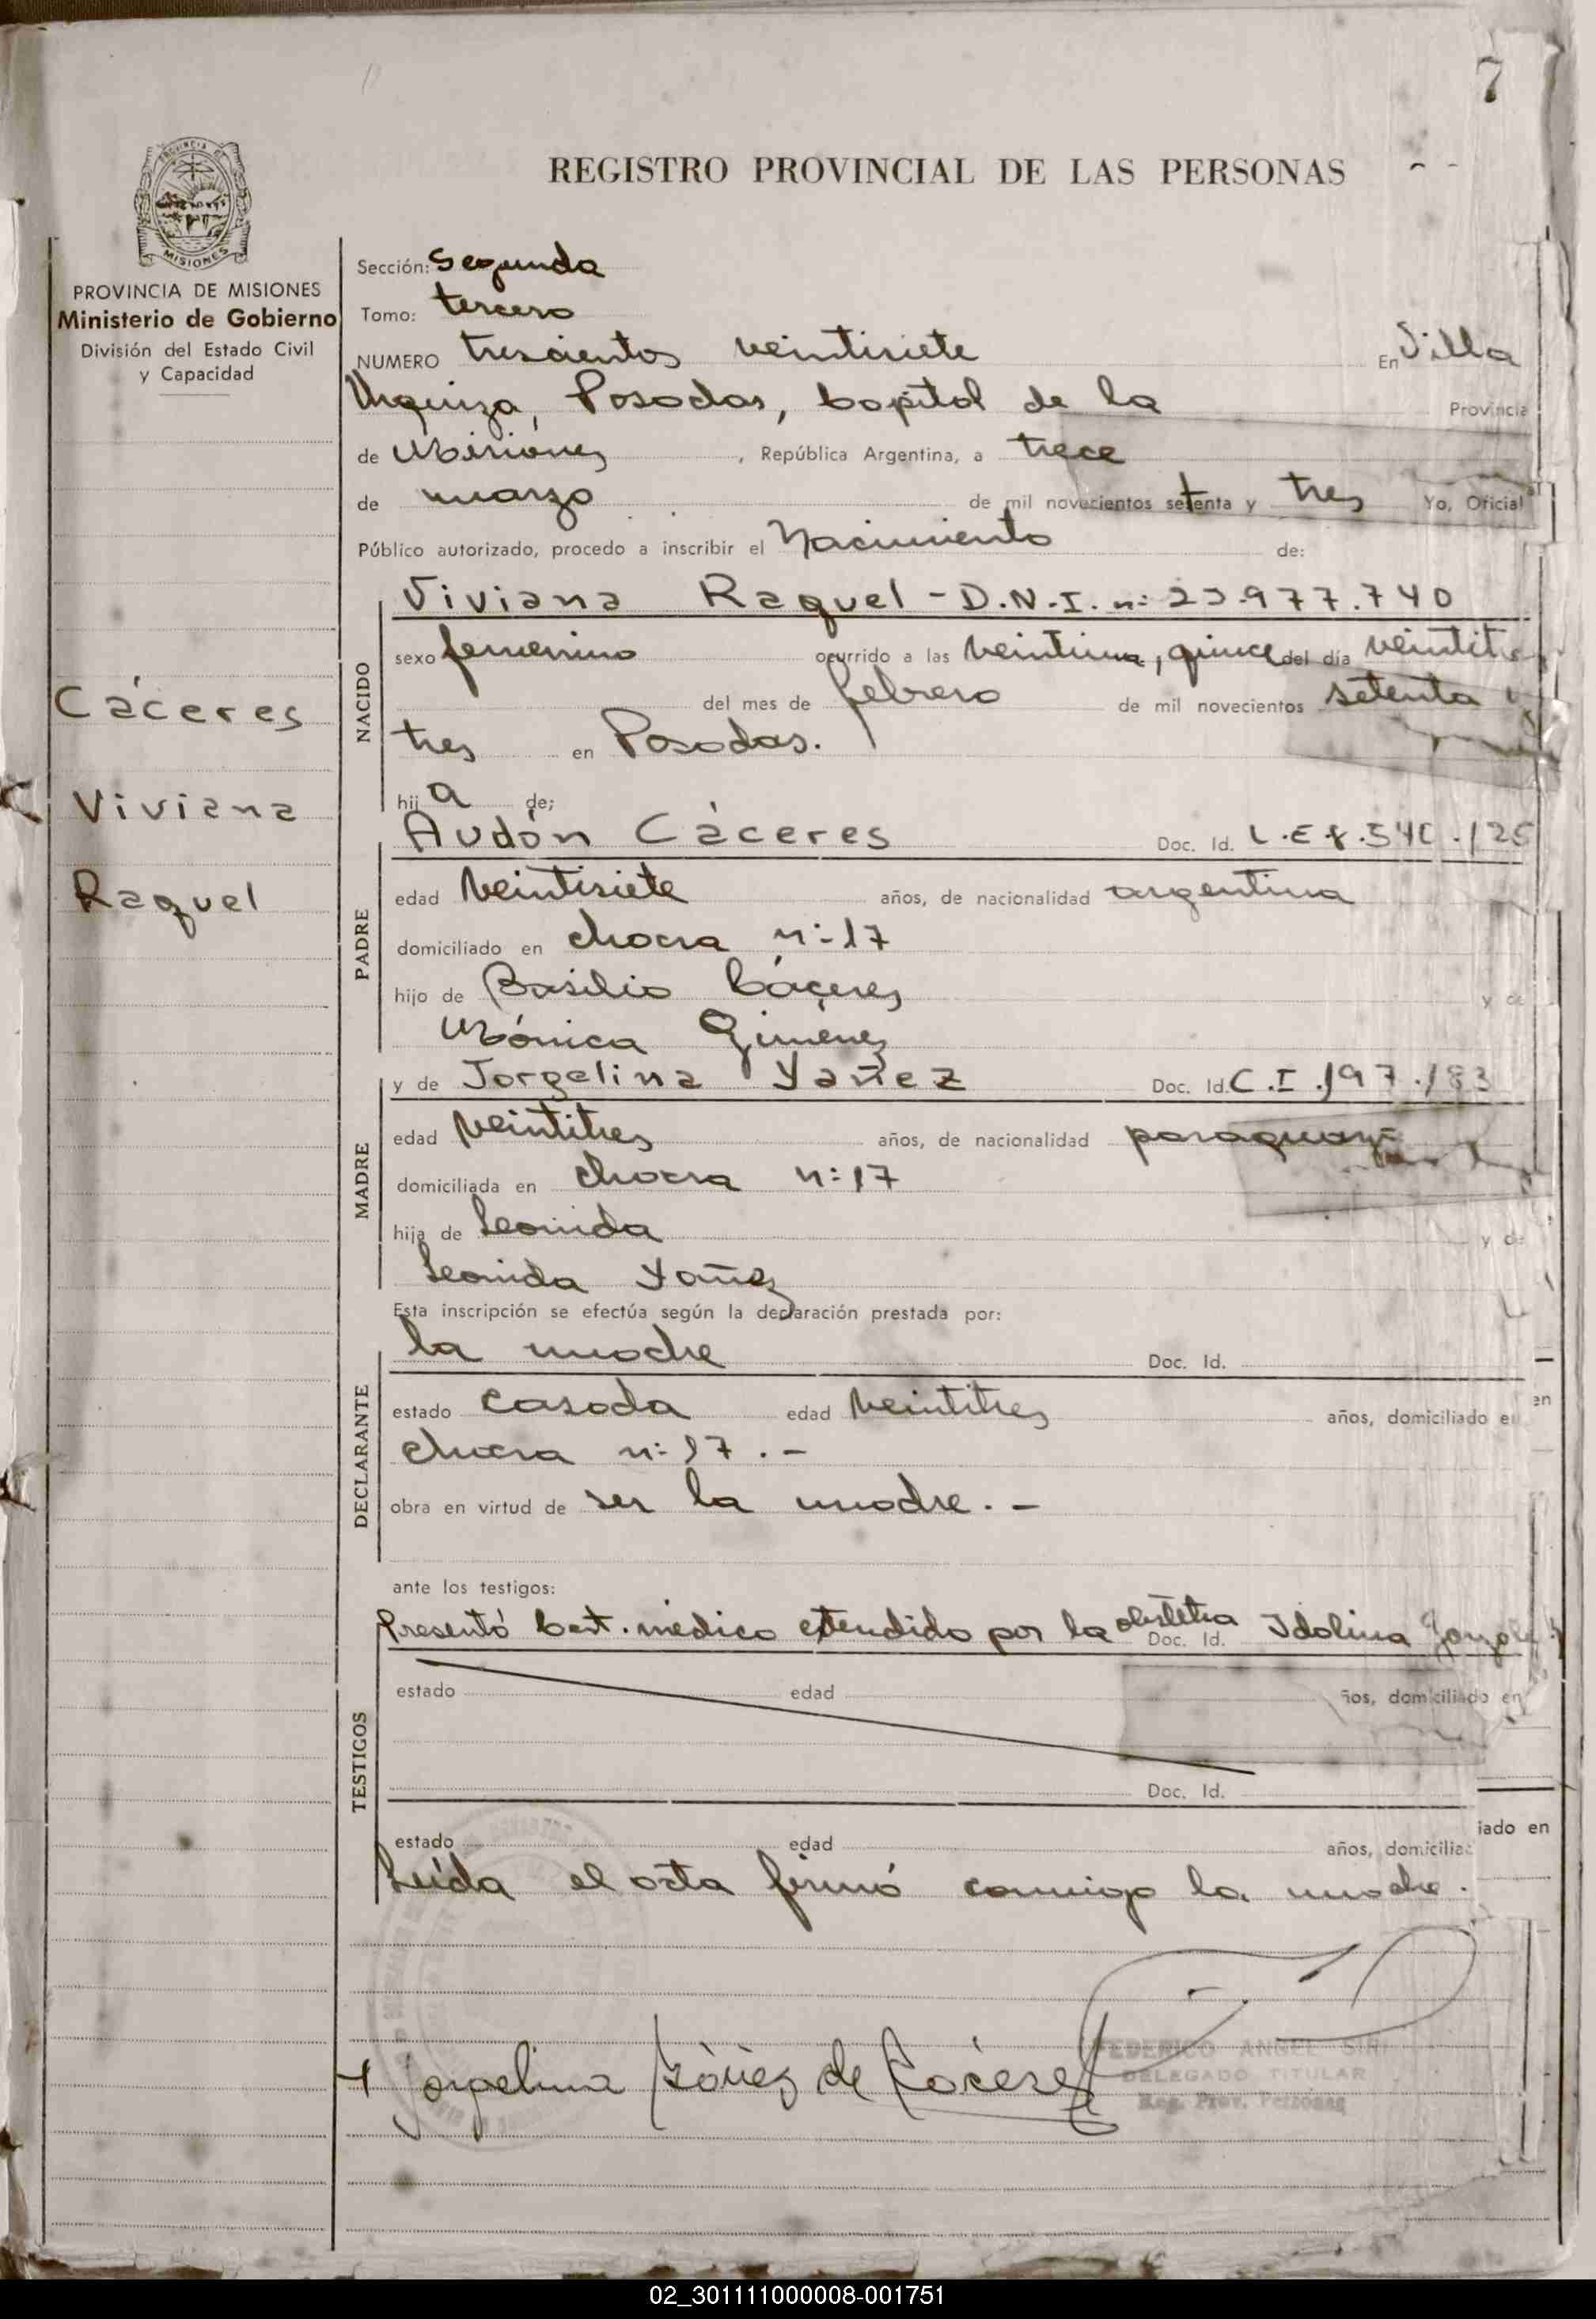 7
REGISTRO PROVINCIAL DE LAS PERSONAS
PROVINCIA DE MISIONES
Ministerio de Gobierno
División del Estado Civil
y Capacidad
Cáceres
Viviana
Raquel
Sección: Segunda
Tomo: tercero
NUMERO trescientos veintisiete En Villa
Urquiza, Posadas, Capital de la Provincia
de Misiones, República Argentina, a trece
de marzo de mil novecientos setenta y tres Yo, Oficial
Público autorizado, procedo a inscribir el Nacimiento de:
NACIDO
Viviana Raquel - D.N.I. n: 23.977.740
sexo femenino ocurrido a las veintiuna, quince del día veintitres
del mes de febrero de mil novecientos setenta y
tres en Posadas.
hij a de;
PADRE
Audón Cáceres Doc. Id. L.E 8.540.125
edad veintisiete años, de nacionalidad argentina
domiciliado en chacra n:17
hijo de Basilio Cáceres y de
Mónica Giménez
MADRE
y de Jorgelina Yañez Doc. Id. C.I.197.183
edad veintitres años, de nacionalidad paraguaya
domiciliada en chacra n:17
hija de Leonida y de
Leonida Yañez
Esta inscripción se efectúa según la declaración prestada por:
DECLARANTE
la madre Doc. Id.
estado casada edad veintitres años, domiciliado en
chacra n:17.-
obra en virtud de ser la madre.-
ante los testigos:
TESTIGOS
Presentó Cert. médico extendido por la obstetra Doc. Id. Idolina González
estado edad años, domiciliado en
Doc. Id.
estado edad años, domiciliado en
Leída el acta firmó conmigo la madre.
Jorgelina Yáñez de Cáceres
FEDERICO ANGEL SIRI
DELEGADO TITULAR
Reg. Prov. Personas
02_301111000008-001751